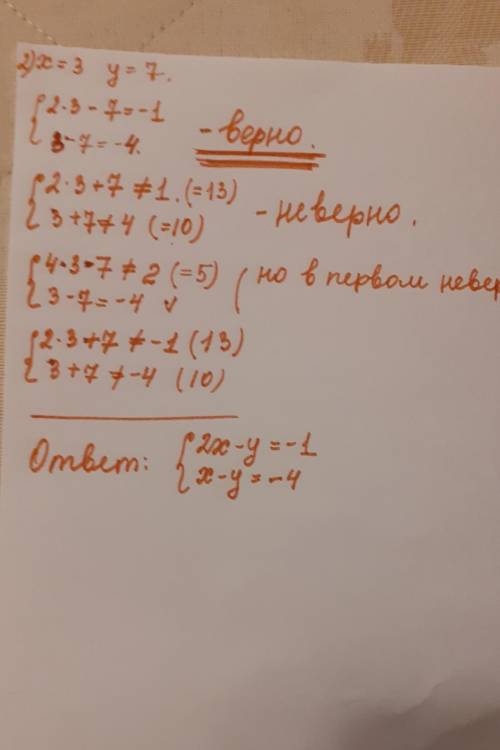 2) x = 3 y = 7.
{ 2·3 - 7 = -1
3 - 7 = -4.
- верно.
{ 2·3 + 7 ≠ 1. (=13)
3 + 7 ≠ 4 (=10)
- неверно.
{ 4·3 - 7 ≠ 2 (=5)
3 - 7 = -4 ✓
( но в первом невер
{ 2·3 + 7 ≠ -1 (13)
3 + 7 ≠ -4 (10)
Ответ: { 2x - y = -1
x - y = -4